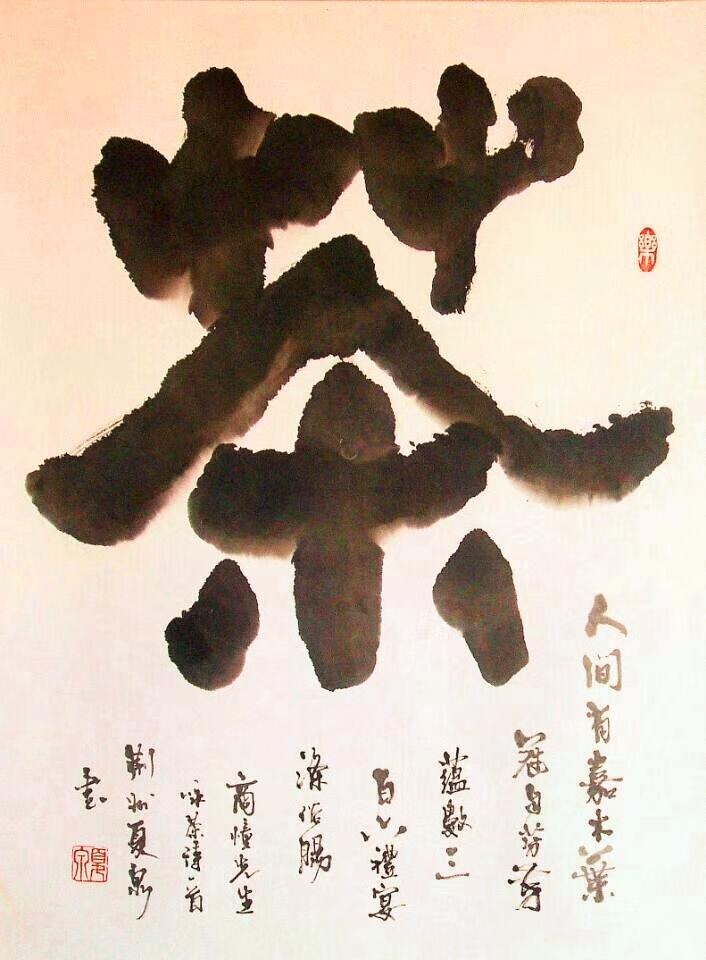 茶
樂
人间有嘉木葉
花自芬芳
蘊數三
百六禮宴
滌俗腸
商憧先生
咏茶詩一首
荆州夏泉
書
夏泉